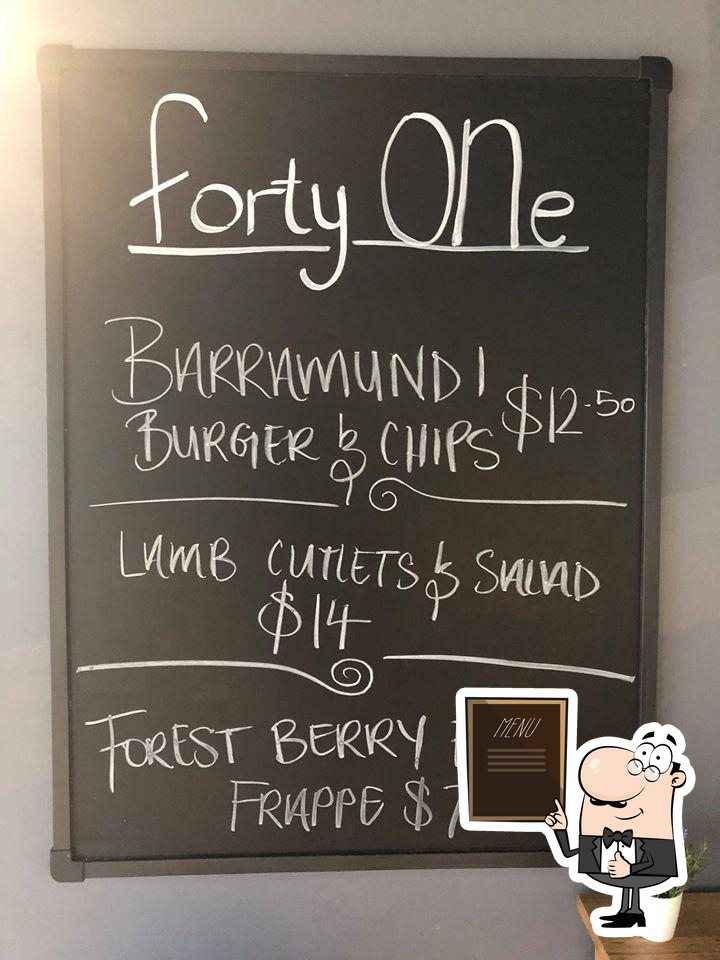 forty ONe
BARRAMUNDI
BURGER & CHIPS $12.50
LAMB CUTLETS & SALAD
$14
FOREST BERRY
FRAPPE $
MENU